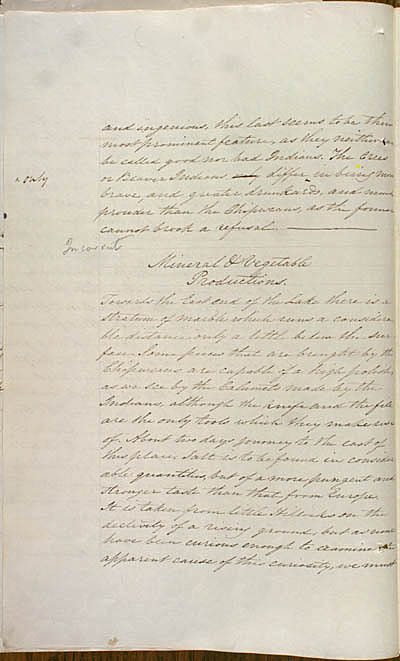 and ingenious, this last seems to be their
most prominent feature, as they neither can
be called good nor bad Indians. The Crees
^ only
or Beaver Indians differ in being more
brave, and greater drunkards, and more
prouder than the Chipweans, as the former
cannot brook a refusal.
Mineral & Vegetable
Productions.
Towards the East end of the Lake there is a
stratum of marble which runs a considera
ble distance only a little below the sur
face. Some pieces that are brought by the
Chipweans are capable of a high polish,
as we see by the Calumets made by the
Indians, although the knife and the file
are the only tools which they make use
of. About two days journey to the east of
this place, Salt is to be found in consider
able quantities, but of a more pungent and
stronger taste than that from Europe.
It is taken from little Hillocks on the
declivity of a rising ground, but as none
have been curious enough to examine the
apparent cause of this curiosity, we must